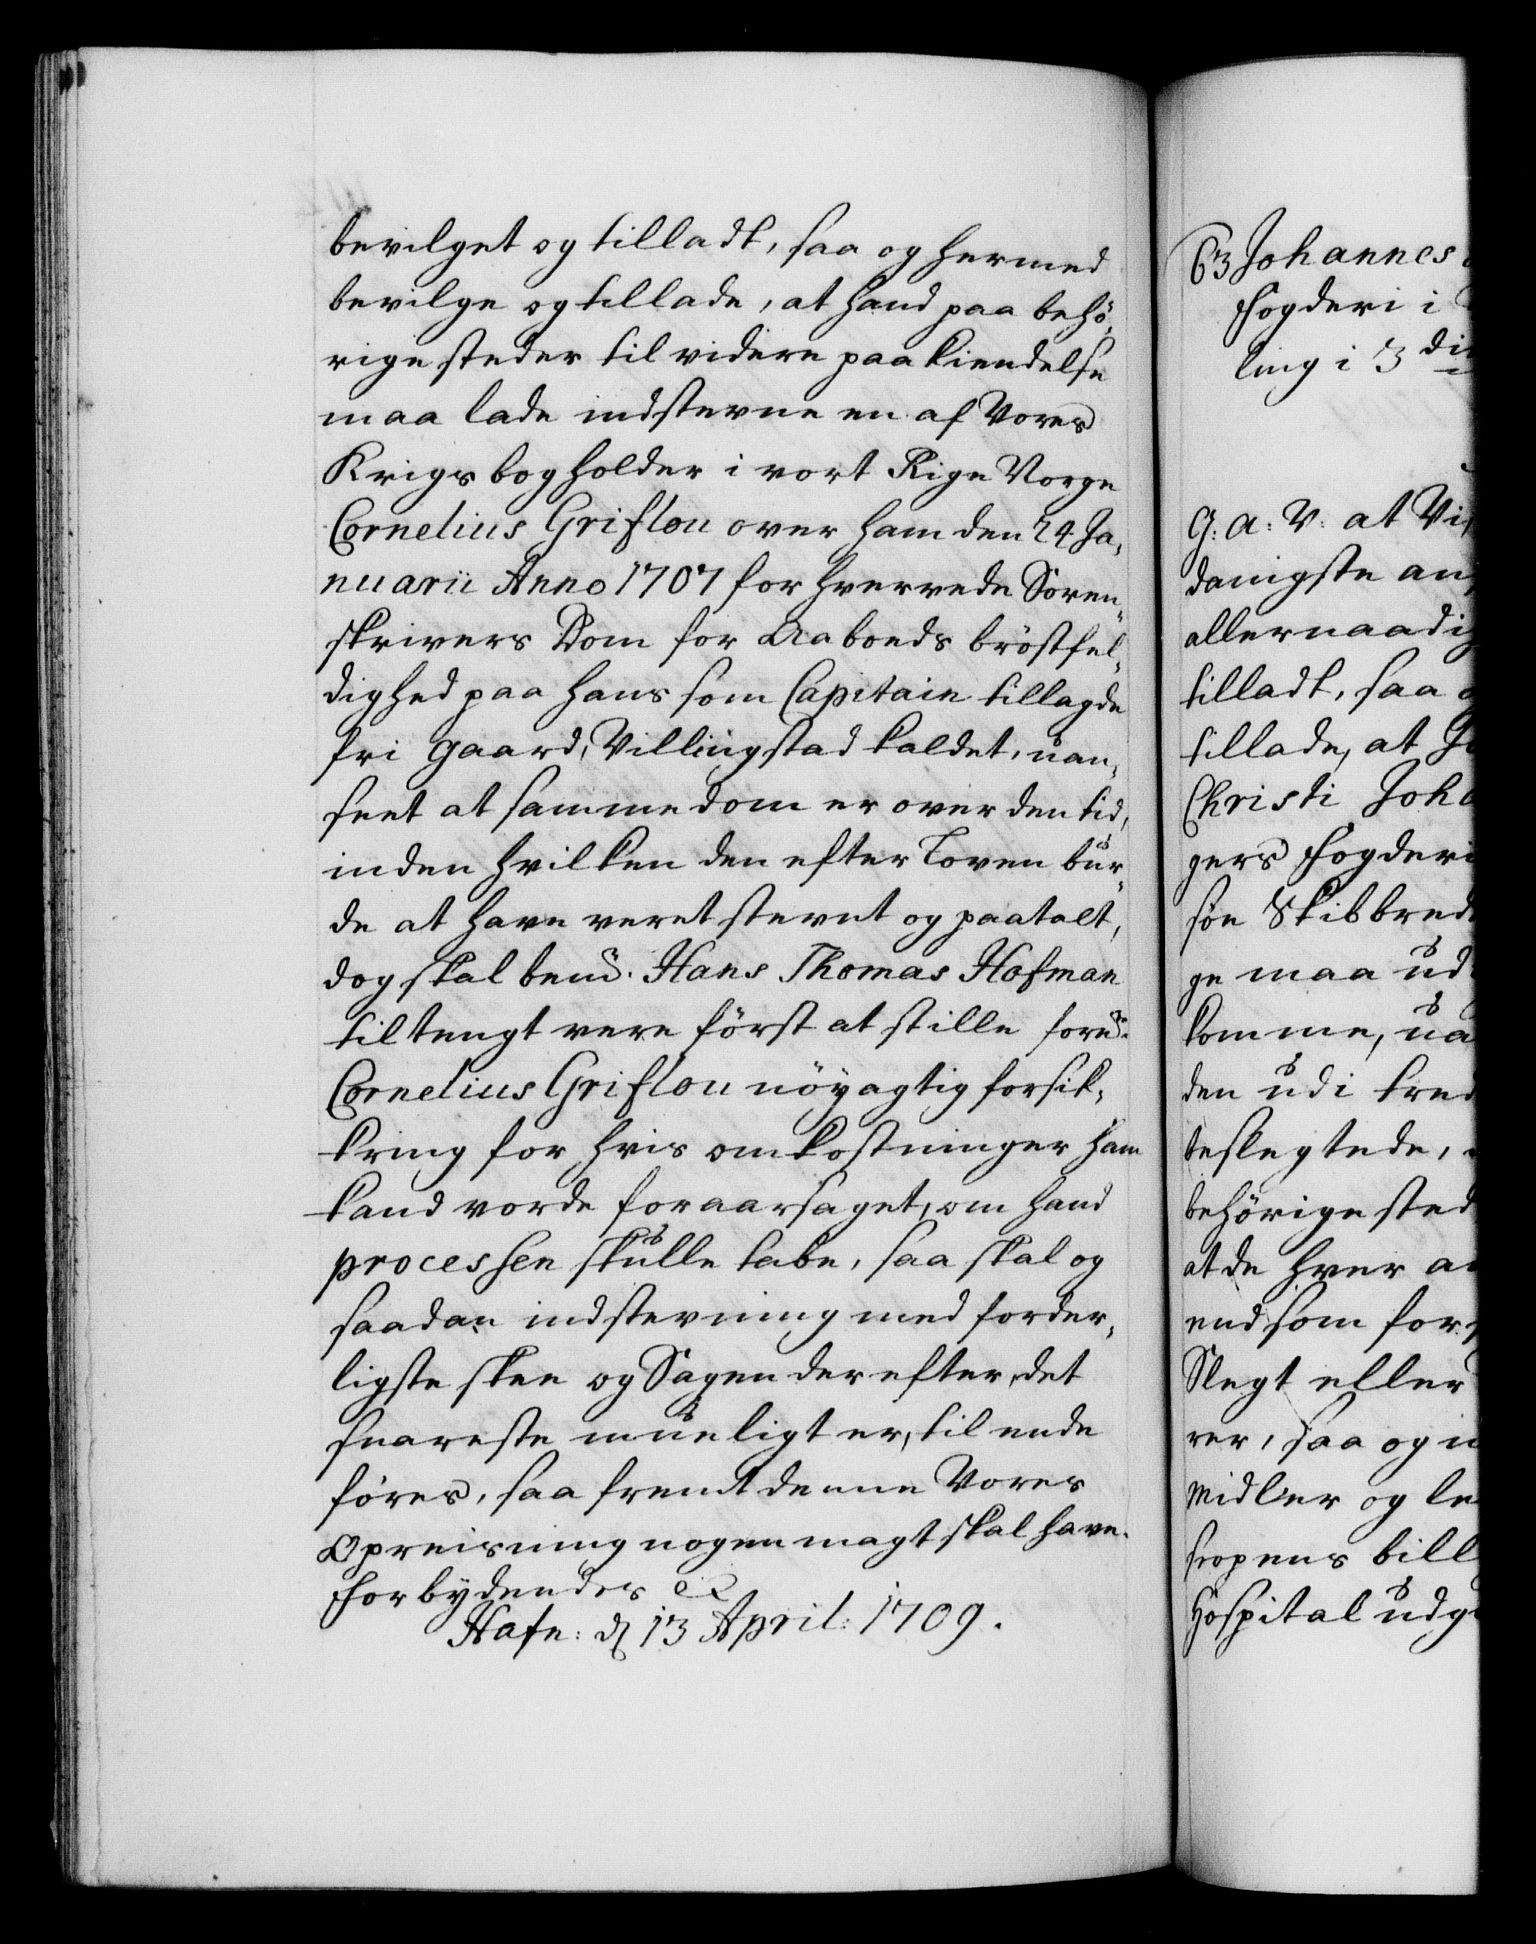 bevilget og tilladt, saa og hermed
bevilge og tillade, at hand paa behö-
rige steder til videre paakiendelse
maa lade indstevne en af Vores
Krigs bogholder i vort Rige Norge
Cornelius Griflou over ham den 24 Ja-
nuarii Anno 1707 for hvervede Soren-
skrivers Dom for Aaboeds bröstfel-
dighed paa hans som Capitain tillagde
fri gaard, Villingstad kaldet, uan-
seet at samme dom er over den tid,
inden hvilken den efter Loven bur-
de at have veret stevnt og paatalt,
dog skal bemd. Hans Thomas Hofman
tiltengt vere först at stille forñ.
Cornelius Griflou nöyagtig forsik-
kring for hvis omkostninger ham
kand vorde foraarsaget, om hand
processen skulle tabe, saa skal og
saadan indstevning med forder-
ligste skee og Sagen der efter, det
snareste mueligt er, til ende
föres, saa fremt denne Vores
Opreisning nogen magt skal have.
Forbydendes &
Hafn: d 13 April: 1709.
63 Johannes
Fogderi i
ling i 3 di
G: A: V: at Vi
danigste an
allernaadig
tilladt, saa
tillade, at
Christi Joha
gers Fogderi
söe Skibbred
ge maa ud
komme, ua
den udi tred
beslegtede,
behörige sted
at de hver a
end som for
Slegt eller
rer, saa og
Midler og le
sropens bill
Hospital udg